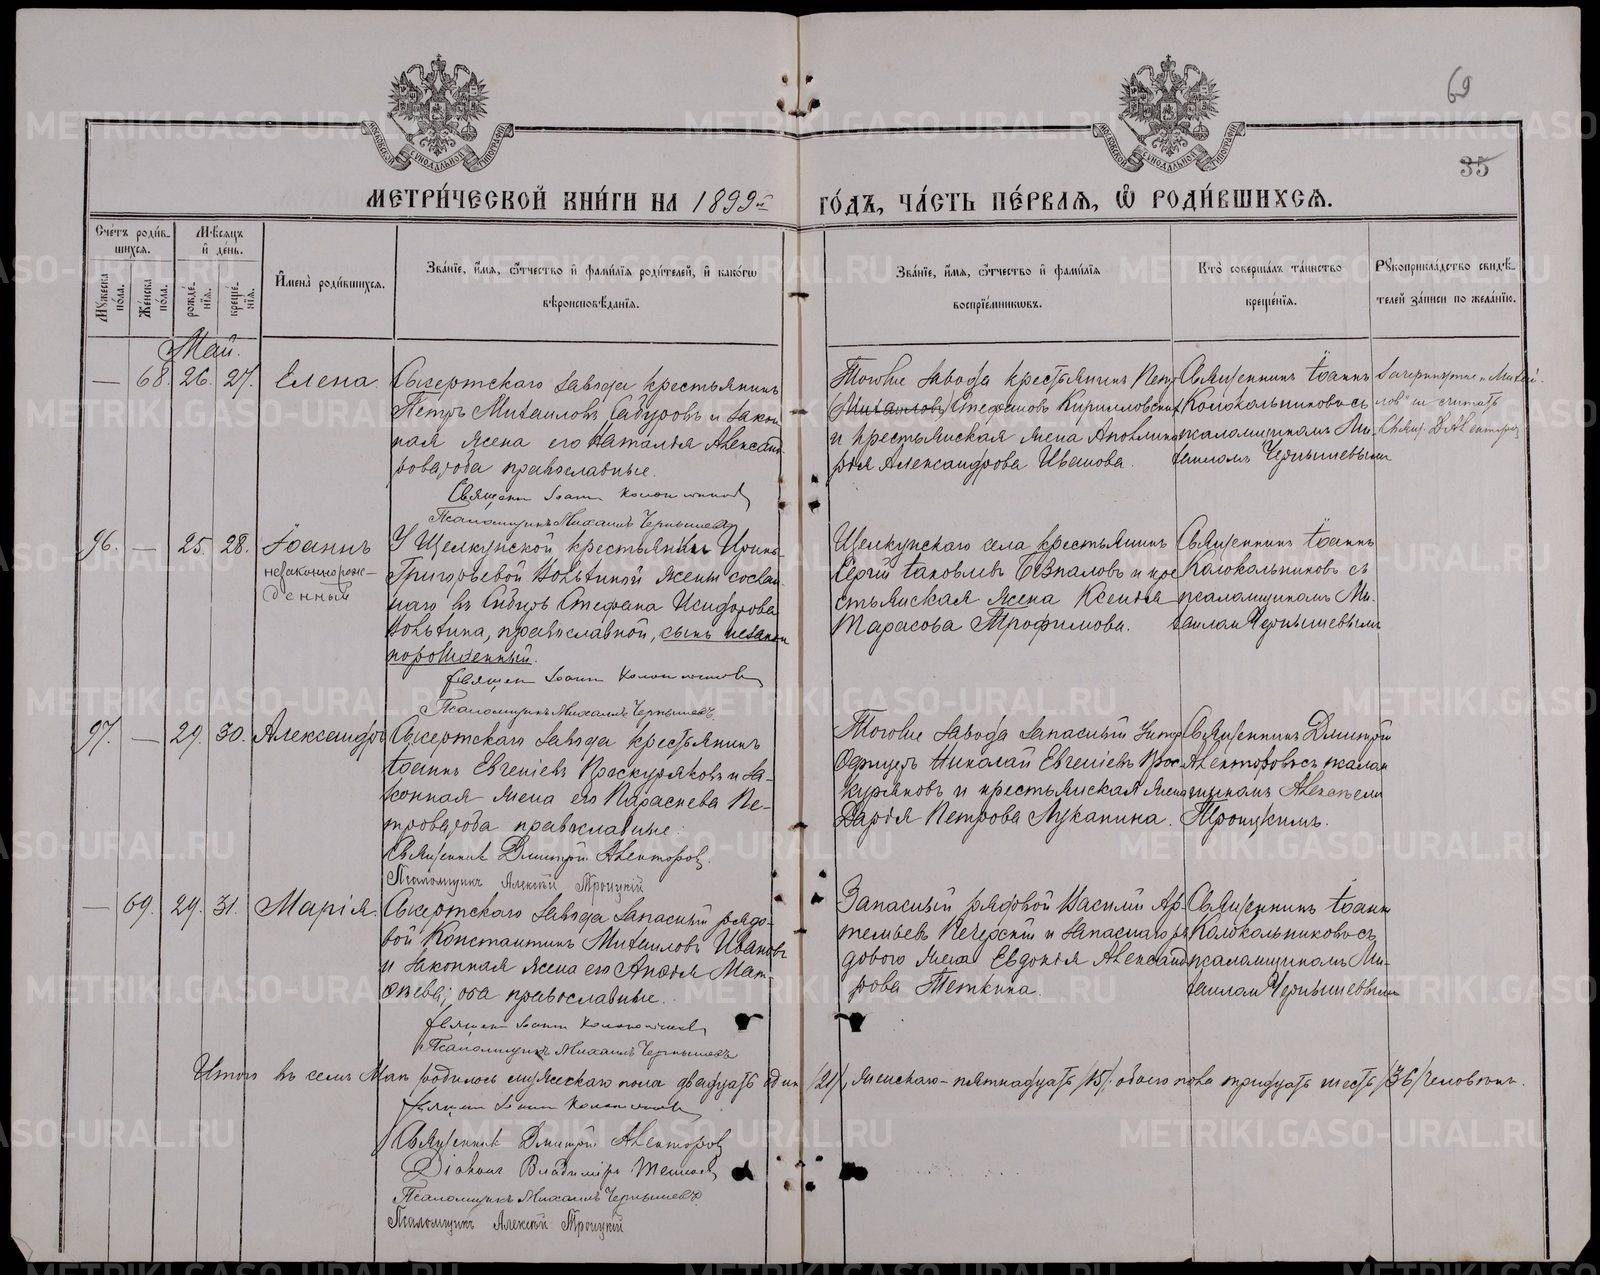 69
35
МОСКОВСКОЙ СѴНОДАЛЬНОЙ ТИПОГРАФІИ
МОСКОВСКОЙ СѴНОДАЛЬНОЙ ТИПОГРАФІИ
МЕТРИ́ЧЕСКОЙ КНИ́ГИ НА 1899й ГО́ДЪ, ЧА́СТЬ ПЕ́РВАЯ, Ѿ РОДИ́ВШИХСЯ.
Сче́тъ роди́в-
шихся.
Мѣсяцъ
и де́нь.
Му́жеска
по́ла.
Же́нска
по́ла.
рожде́-
нія.
креще́-
нія.
Имена̀ роди́вшихся.
Зва́нїе, и́мя, ѻ́тчество и фами́лїя роди́телей, и како́гѡ
вѣроисповѣ́данїя.
Зва́нїе, и́мя, ѻ́тчество и фами́лїя
воспрїе́мникѡвъ.
Кто̀ соверша́лъ та́инство
креще́нїя.
Рꙋкоприкла́дство свидѣ́-
телей за́писи по жела́нїю.
Май.
— 68. 26. 27. Елена.
Сысертскаго завода крестьянинъ
Петръ Михаиловъ Сабуровъ и закон-
ная жена его Наталья Александ-
рова, оба православные.
Священ Іоаннъ Колокольниковъ
Псаломщикъ Михаилъ Чернышевъ
Тогоже завода крестьянинъ Петръ
Михаиловъ Стефановъ Кирилловскихъ
и крестьянская жена Аполлина-
рія Александрова Иванова.
Священникъ Іоаннъ
Колокольниковъ съ
псаломщикомъ Ми-
хаиломъ Чернышевымъ
Зачеркнутое „Михаи-
ловъ" не считать
Свящ. Д. Авенторовъ
96. — 25. 28. Іоаннъ
незаконнорож-
денный
У Щелкунской крестьянки Ирины
Григорьевой жены сослан-
наго въ Сибирь Стефана Исидорова
православной, сынъ незакон-
норожденный.
Священ Іоаннъ Колокольниковъ
Псаломщикъ Михаилъ Чернышевъ
Щелкунскаго села крестьянинъ
Сергій Іаковлевъ Безпаловъ и кре-
стьянская жена Ксенія
Тарасова Трофимова.
Священникъ Іоаннъ
Колокольниковъ съ
псаломщикомъ Ми-
хаиломъ Чернышевымъ
97. — 29. 30. Александръ
Сысертскаго завода крестьянинъ
Іоаннъ Евгеніевъ Проскуряковъ и за-
конная жена его Параскева Пе-
трова, оба православные.
Священникъ Димитрій Авенторовъ.
Псаломщикъ Алексѣй Троицкій
Тогоже завода запасный Унтеръ
Офицеръ Николай Евгеніевъ Прос-
куряковъ и крестьянская жена
Дарія Петрова Луканина.
Священникъ Димитрій
Авенторовъ съ псалом-
щикомъ Алексѣемъ
Троицкимъ.
— 69. 29. 31. Марія.
Сысертскаго завода запасный рядо-
вой Константинъ Михаиловъ Ивановъ
и законная жена его Анна Мат-
ѳеева, оба православные.
Священ Іоаннъ Колокольниковъ
Псаломщикъ Михаилъ Чернышевъ
Запасный рядовой Василій Ар-
темьевъ Печерскій и запаснаго ря-
доваго жена Евдокія Александ-
рова Теткина.
Священникъ Іоаннъ
Колокольниковъ съ
псаломщикомъ Ми-
хаиломъ Чернышевымъ
Итого въ семъ Маѣ родилось мужескаго пола двадцать одинъ /21/, женскаго - пятнадцать /15/. обоего пола тридцать шесть /36/ человѣкъ.
Священ Іоаннъ Колокольниковъ
Священникъ Димитрій Авенторовъ
Діаконъ Владиміръ
Псаломщикъ Михаилъ Чернышевъ
Псаломщикъ Алексѣй Троицкій
METRIKI.GASO-URAL.RU